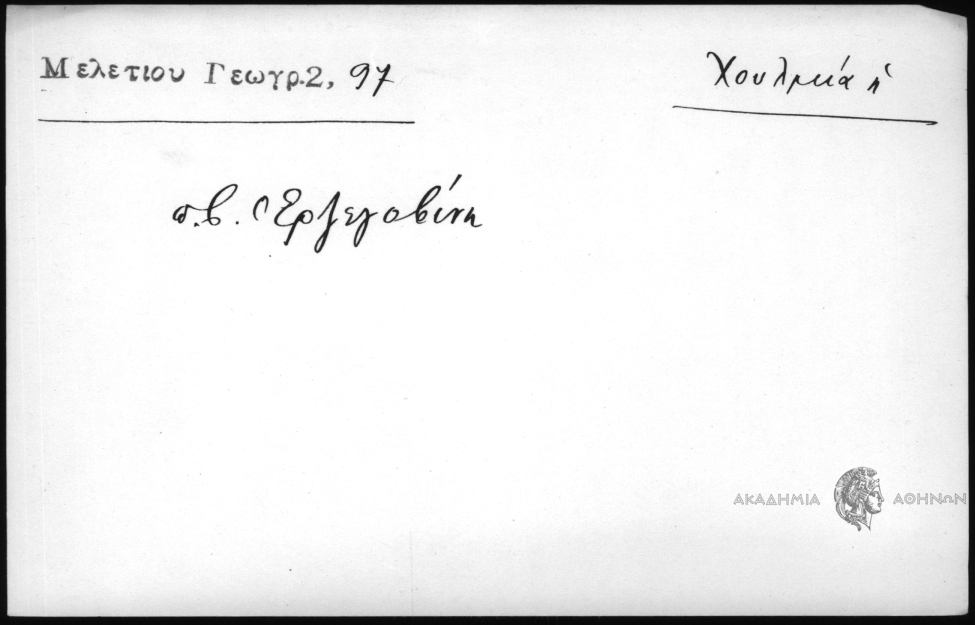 Μελετιου Γεωγρ.2, 97
Χουλμιά ἡ
π.β. Ἑρζεγοβίνη
ΑΚΑΔΗΜΙΑ ΑΘΗΝΩΝ